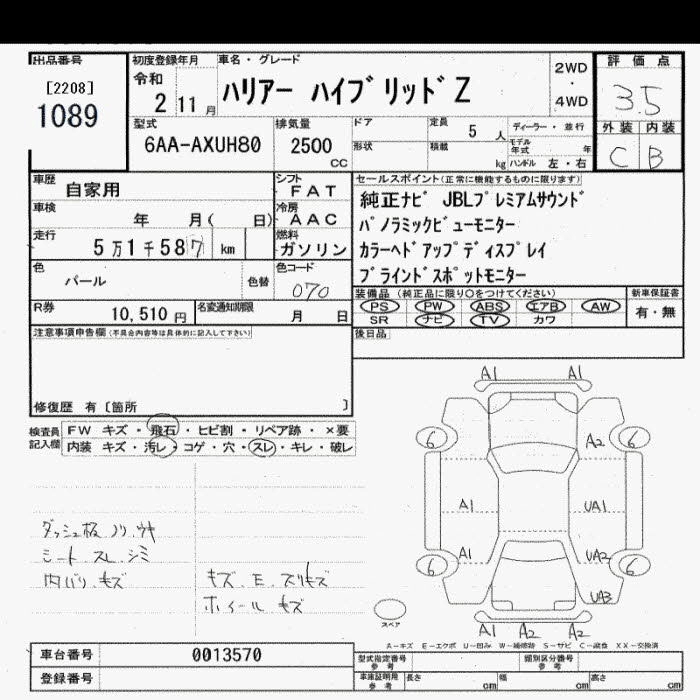 出品番号
[2208]
1089
初度登録年月
令和
2 11 月
車名・グレード
ハリアー ハイブリッド Z
2WD
・
4WD
評価点
3.5
外装 内装
C B
型式
6AA-AXUH80
排気量
2500
CC
ドア
形状
定員
5 人
積載
kg
ディーラー・並行
モデル年式 年
ハンドル 左・右
車歴
自家用
シフト
FAT
車検
年 月( 日)
冷房
AAC
走行
5万1千587 km
燃料
ガソリン
色
パール
色替
色コード
070
R券
10,510 円
名変通知期限
月 日
セールスポイント(正常に機能するものに限ります)
純正ナビ JBLプレミアムサウンド
パノラミックビューモニター
カラーヘドアップディスプレイ
ブラインドスポットモニター
装備品 (純正品に限り○をつけてください)
新車保証書
PS PW ABS エアB AW
有・無
SR ナビ TV カワ
後日品
注意事項申告欄(不具合内容等は具体的に記入して下さい)
修復歴 有〔箇所 〕
検査員
記入欄
FW キズ・飛石・ヒビ割・リペア跡・×要
内装 キズ・汚レ・コゲ・穴・スレ・キレ・破レ
ダッシュ板 ノリ.ウキ
シート.スレ.シミ
内バリ.キズ
キズ.E.スリキズ
ホイール キズ
A1 A1
6 A2 6
A1 UA1
A1 UA2
6 6
UA3
スペア
A1 A2 A2
A-キズ E-エクボ U-凹み W-補修跡 S-サビ C-腐食 XX-交換済
車台番号
0013570
登録番号
型式指定番号
参考
類別区分番号
参考
車庫証明用
参考
長さ cm
幅 cm
高さ cm